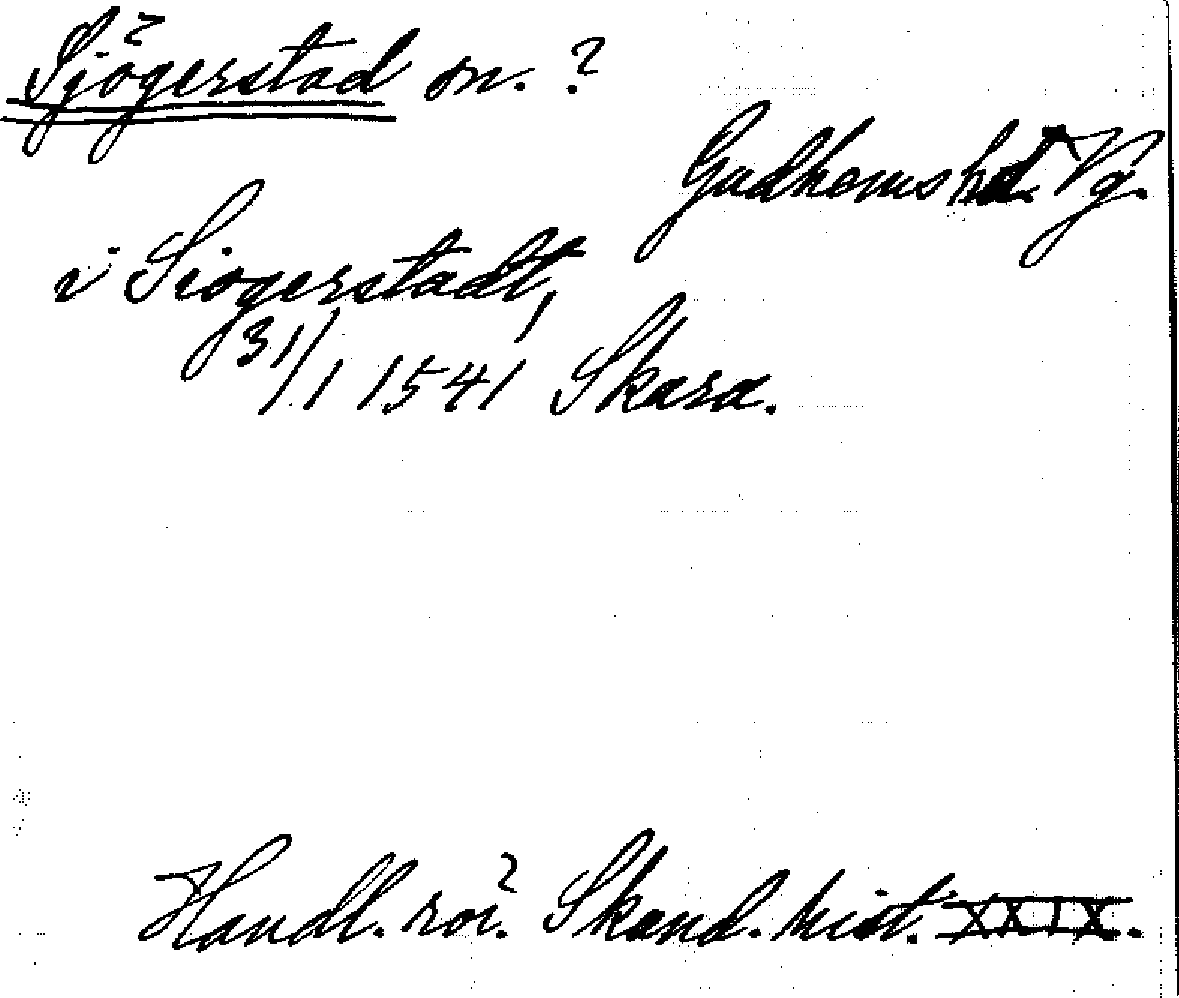 Sjögerstad sn. ?
Gudhems hd. Vg.
i Siogerstadt,
31/1 1541 Skara.
Handl. rör. Skand. hist. XXIX.